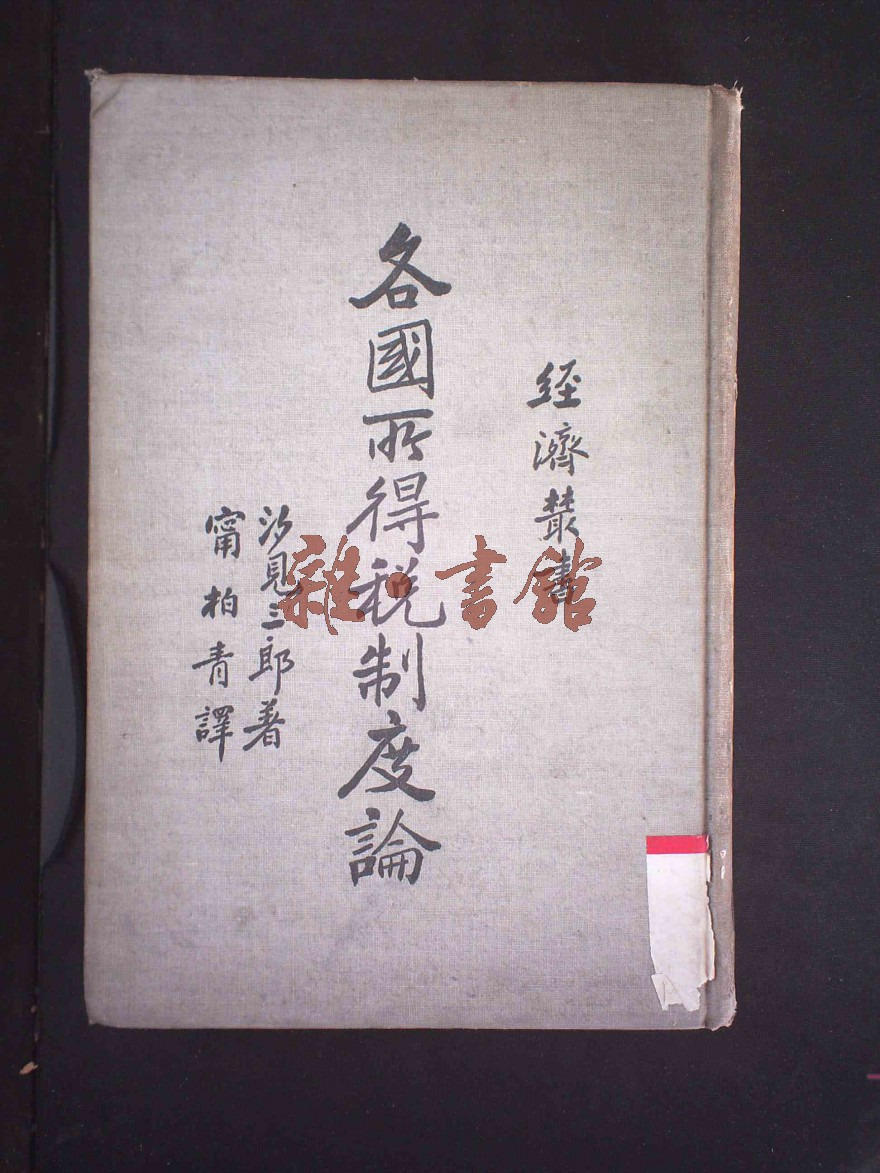 經濟叢書
各國所得税制度論
汐見三郎著
甯柏青譯
雜·書館